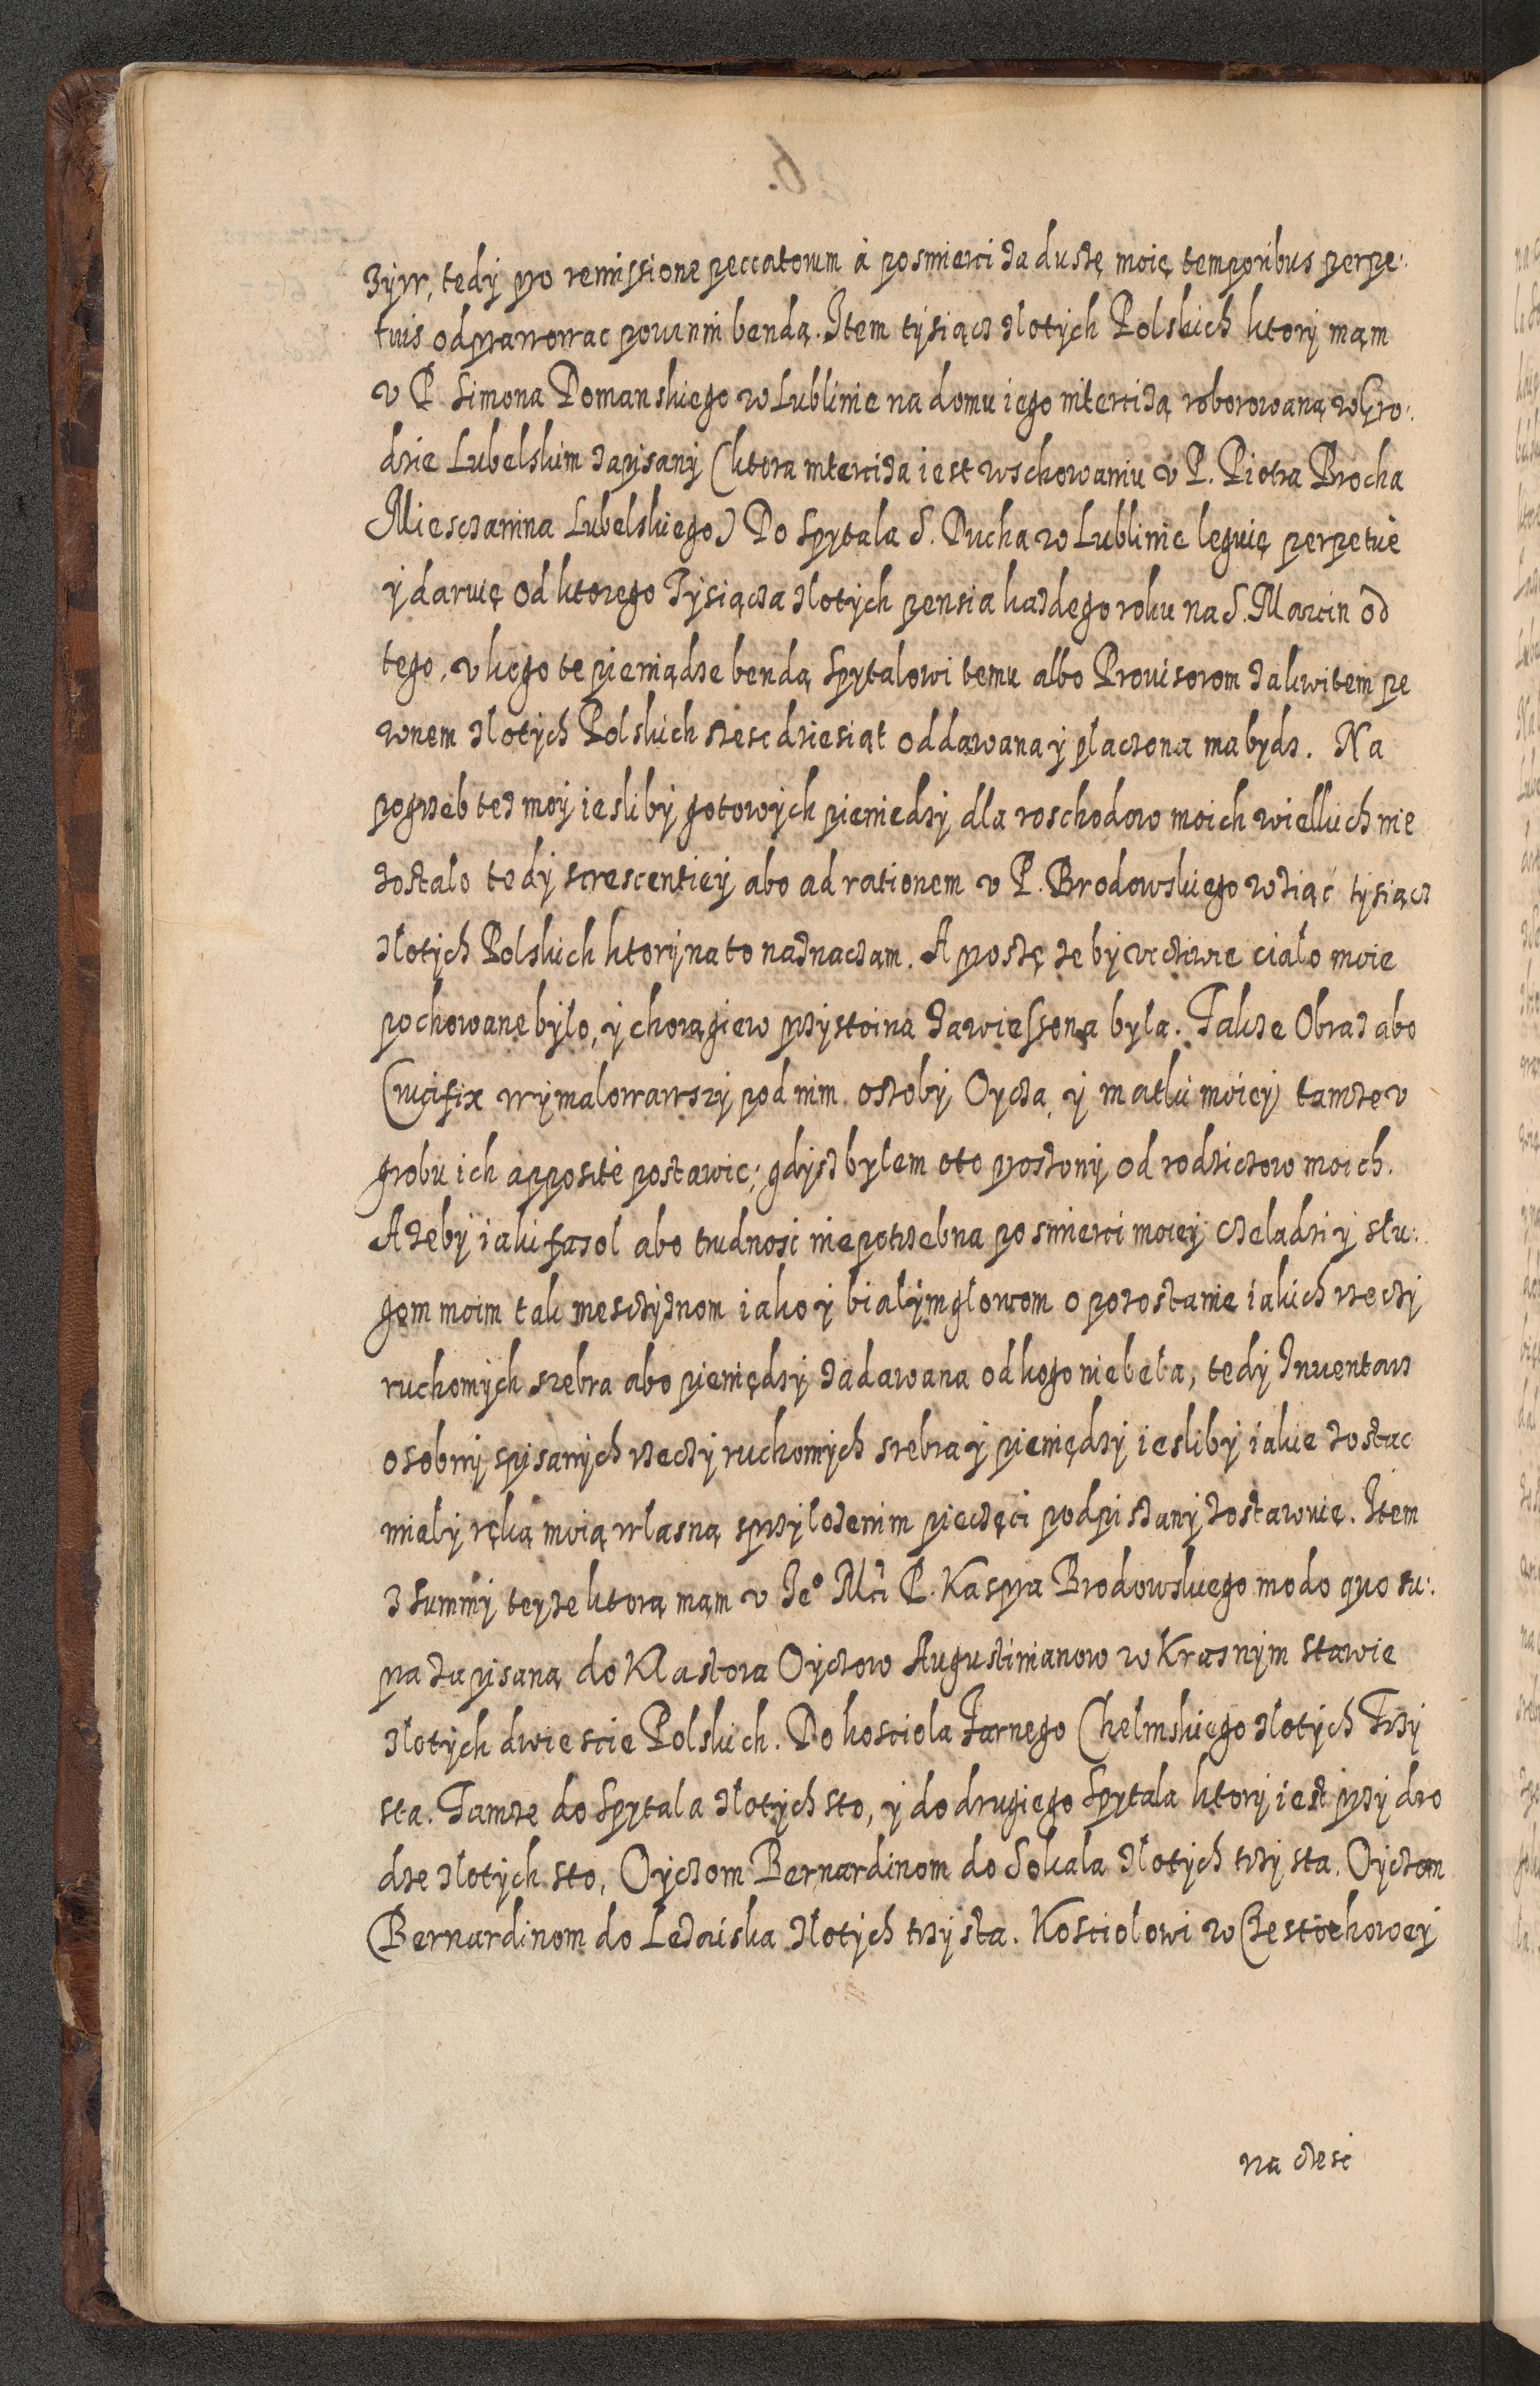 zyw, tedy pro remissione peccatorum à posmierci za duszę moię temporibus perpe:
tuis odprawowac powinni bendą. Item tysiącz złotych Polskich ktory mąm
v P. Simona Domanskiego w Lublinie na domu iego intercizą roborowaną w Gro:
dzie Lubelskim zapisany (ktora interciza iest wschowaniu v P. Piotra Brocha
Miesczanina Lubelskiego) Do Szpytala S. Ducha w Lublinie leguię perpetuè
y daruię od ktorego Tysiącza złotych pensia kazdego roku na S. Marcin od
tego, v kogo te pieniądze bendą Szpytalowi temu albo Prouisorom za kwitem pe
wnem złotych Polskich szescdziesiąt oddawana y płaczona ma bydz. Na
pogrzeb tez moy iesliby gotowych pieniedzy dla roschodow moich wielkich nie
zostalo tedy screscentiey abo ad rationem v P. Brodowskiego wziąć tysiącz
złotych Polskich ktory na to naznaczam. A proszę ze by vcztiwie ciało moie
pochowane było, y chorągiew przystoina zawieszona była. Takze Obraz abo
Crucifix wymalowawszy pod nim osoby Oycza, y matki moiey tamze v
grobu ich appositè postawic; gdysz bylem oto proszony od rodziczow moich.
A zeby iaki fasol abo trudnosc niepotrzebna po smierci moiey czeladzi y słu:
gom moim tak mesczyznom iako y białymgłowom o pozostanie iakich rzeczy
ruchomych srebra abo pieniędzy zadawana od kogo niebeła, tedy Inuentarz
osobny spisanych rzeczy ruchomych srebra y pieniędzy iesliby iakie zostac
miały ręką moią własną sprzyłozenim pieczęci podpiszany zostawuię. Item
z summy teyze ktorą mąm v Jeº Mci P. Kaspra Brodowskiego modo quo su:
pra zapisaną do Klastora Oyczow Augustinianow w Krasnym stawie
złotych dwiescie Polskich. Do kosciola Farnego Chelmskiego złotych Trzy
sta. Tamze do Szpytala złotych sto, y do drugiego Szpytala ktory iest przy dro
dze złotych sto, Oyczom Bernardinom do Sokala złotych trzy sta. Oyczom
Bernardinom do Lezaiska złotych trzysta. Kosciolowi w Czestochowey
na czesc